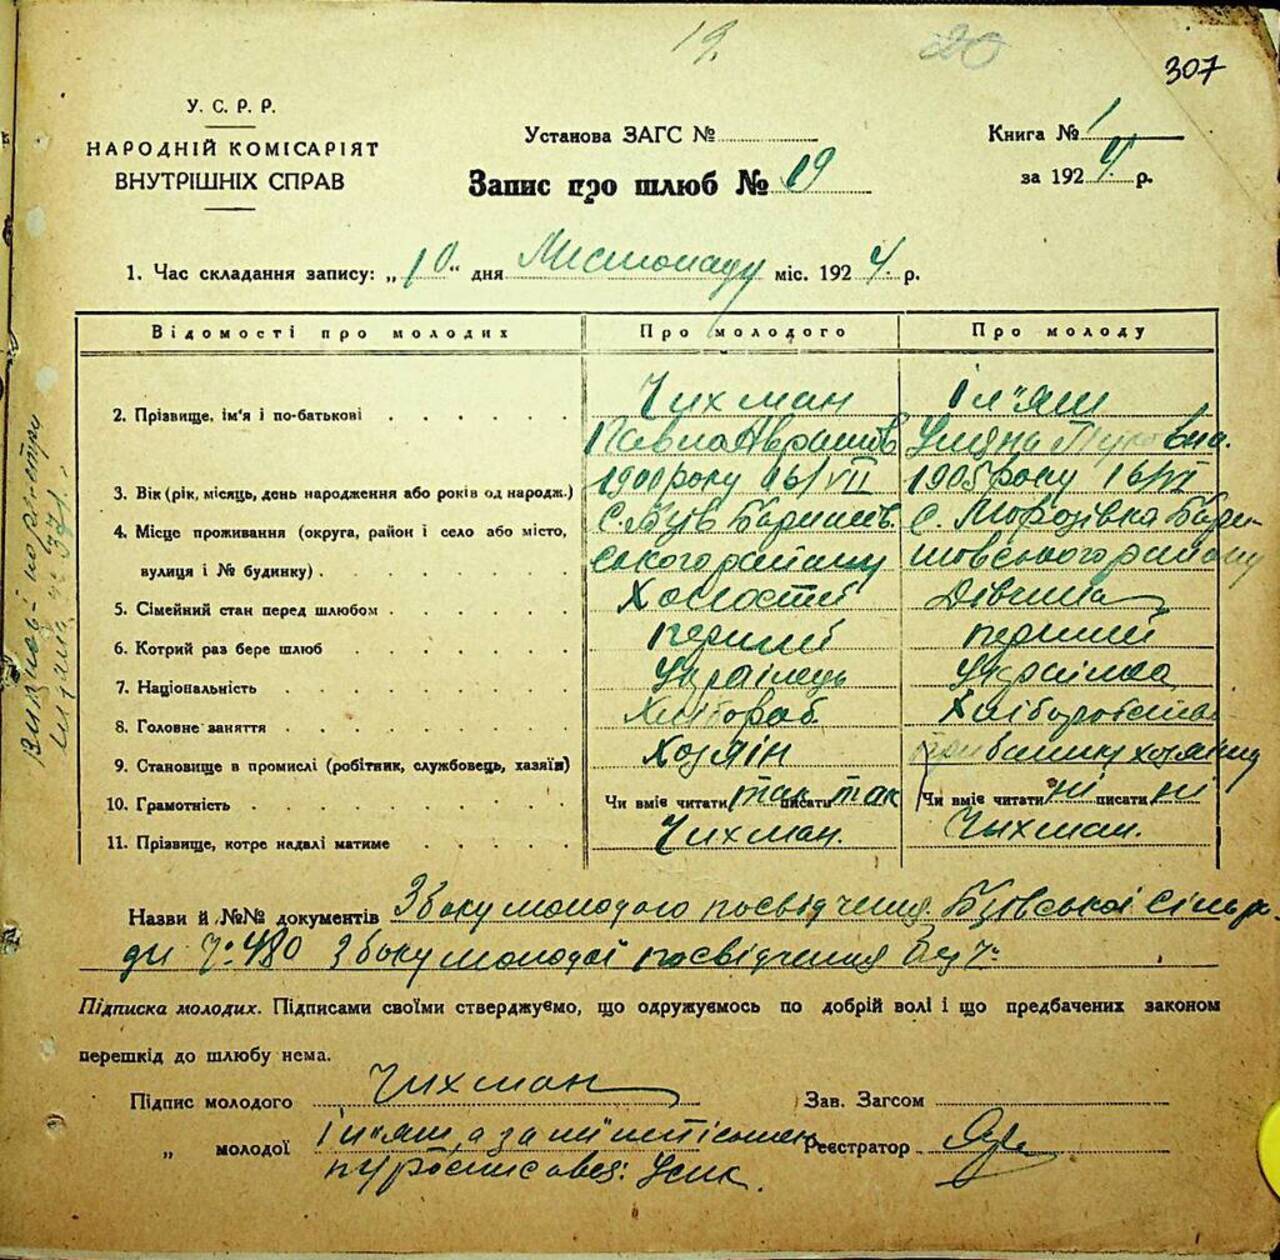 19.
20
307
У. С. Р. Р.
НАРОДНІЙ КОМІСАРІЯТ
ВНУТРІШНІХ СПРАВ
Установа ЗАГС №
Книга № 1
за 1924 р.
Запис про шлюб № 19
1. Час складання запису: „10“ дня Листопаду міс. 1924 р.
Відомості про молодих Про молодого Про молоду
2. Прізвище, ім'я і по-батькові Чихман Іл"яш
Павло Аврамів Уляна
3. Вік (рік, місяць, день народження або років од народж.) 1900 року 16/VII 1905 року 16/VI
4. Місце проживання (округа, район і село або місто, с. Бзів Баришів. с. Морозівка Бари-
вулиця і № будинку) ського району шовського району
5. Сімейний стан перед шлюбом Холостий Дівчина
6. Котрий раз бере шлюб перший перший
7. Національність Українець Українка
8. Головне заняття Хлібороб. Хліборобство
9. Становище в промислі (робітник, службовець, хазяїн) Хозяін при батьку хозяіну
10. Грамотність Чи вміє читати так писати так Чи вміє читати ні писати ні
11. Прізвище, котре надалі матиме Чихман. Чихман.
Назви й №№ документів З боку молодого посвідчення Бзівської Сільра-
ди ч: 480 З боку молодої посвідчення без ч:
Підписка молодих. Підписами своїми стверджуємо, що одружуємось по добрій волі і що предбачених законом
перешкід до шлюбу нема.
Підпис молодого Чихман Зав. Загсом
„ молодої Іл"яш, а за Реєстратор
росписався: Усик.